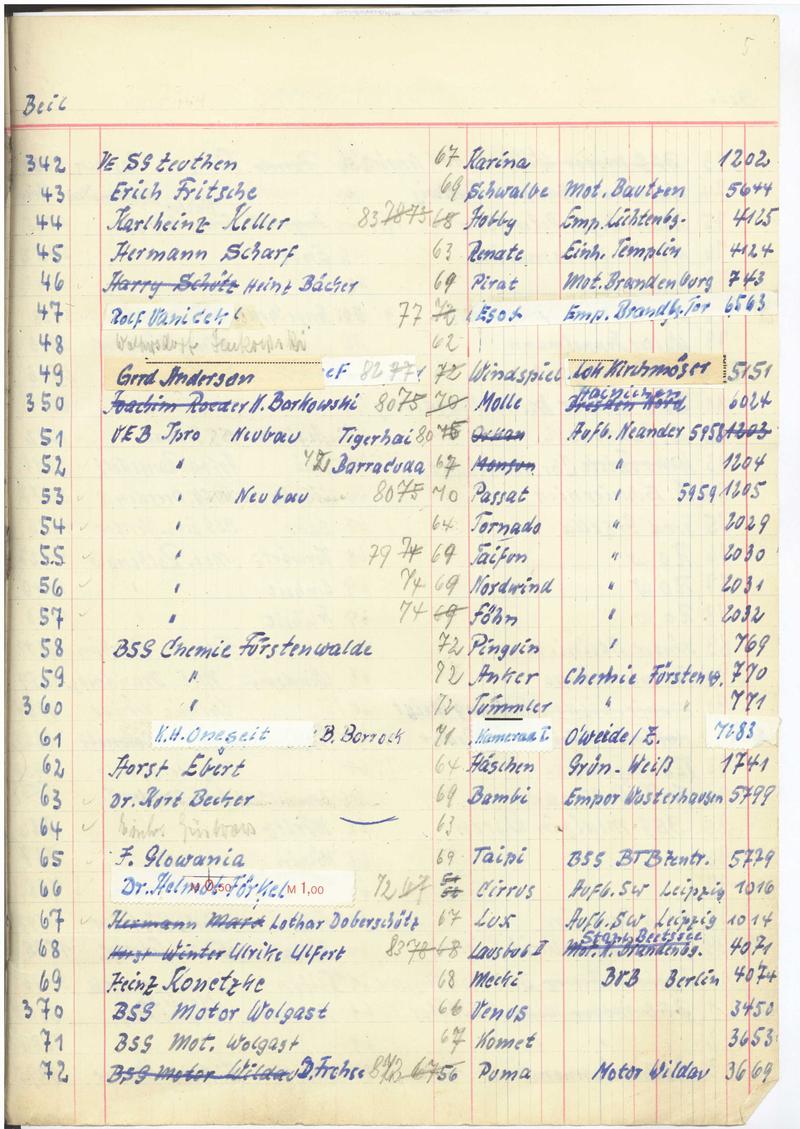 5
Beil
342 VE SG Zeuthen 67 Karina 1202
43 Erich Fritsche 69 Schwalbe Mot. Bautzen 5644
44 Karlheinz Keller 83 78 73 68 Hobby Emp. Lichtenbg. 4125
45 Hermann Scharf 63 Renate Einh. Templin 4124
46 Harry Schütz Heinz Bächer 69 Pirat Mot. Brandenburg 743
47 Rolf Vanicek 77 72 Esox Emp. Brandbg. Tor 6563
48 62
49 Gerd Andersen 82 77 72 Windspiel Lok Kirchmöser 5151
Hainichen
350 Joachim Roeder K. Borkowski 80 75 70 Molle Dresden Nord 6024
51 VEB Ipro Neubau Tigerhai 80 75 Orkan Aufb. Neander 5958 1203
52 " Barracuda 67 Monsun " 1204
53 " Neubau 80 75 70 Passat " 5959 1205
54 " 64 Tornado " 2029
55 " 79 74 69 Taifun " 2030
56 " 74 69 Nordwind " 2031
57 " 74 69 Föhn " 2032
58 BSG Chemie Fürstenwalde 72 Pinguin " 769
59 " 72 Anker Chemie Fürstenw. 770
360 " 72 Tümmler " " 771
61 K.H. Onegeit B. Borrock 71 Kameraa I O'weide/Z. 7283
62 Horst Ebert 64 Häschen Grün-Weiß 1741
63 Dr. Kurt Becher 69 Bambi Empor Wusterhausen 5799
64 63
65 F. Glowania 69 Taipi BSG BTB Zentr. 5779
66 Dr. Helmut Törkel M 0,50 M 1,00 72 67 Cirrus Aufb. SW Leipzig 1016
67 Hermann Marx Lothar Doberschütz 67 Lux Aufb. SW Leipzig 1014
68 Horst Winter Ulrike Ulfert 83 78 68 Lausbub II 4071
69 Heinz Konetzke 68 Mecki BVB Berlin 4074
370 BSG Motor Wolgast 66 Venus 3450
71 BSG Mot. Wolgast 67 Komet 3653
72 BSG Motor Wildau D. Frehse 72 67 56 Puma Motor Wildau 3669